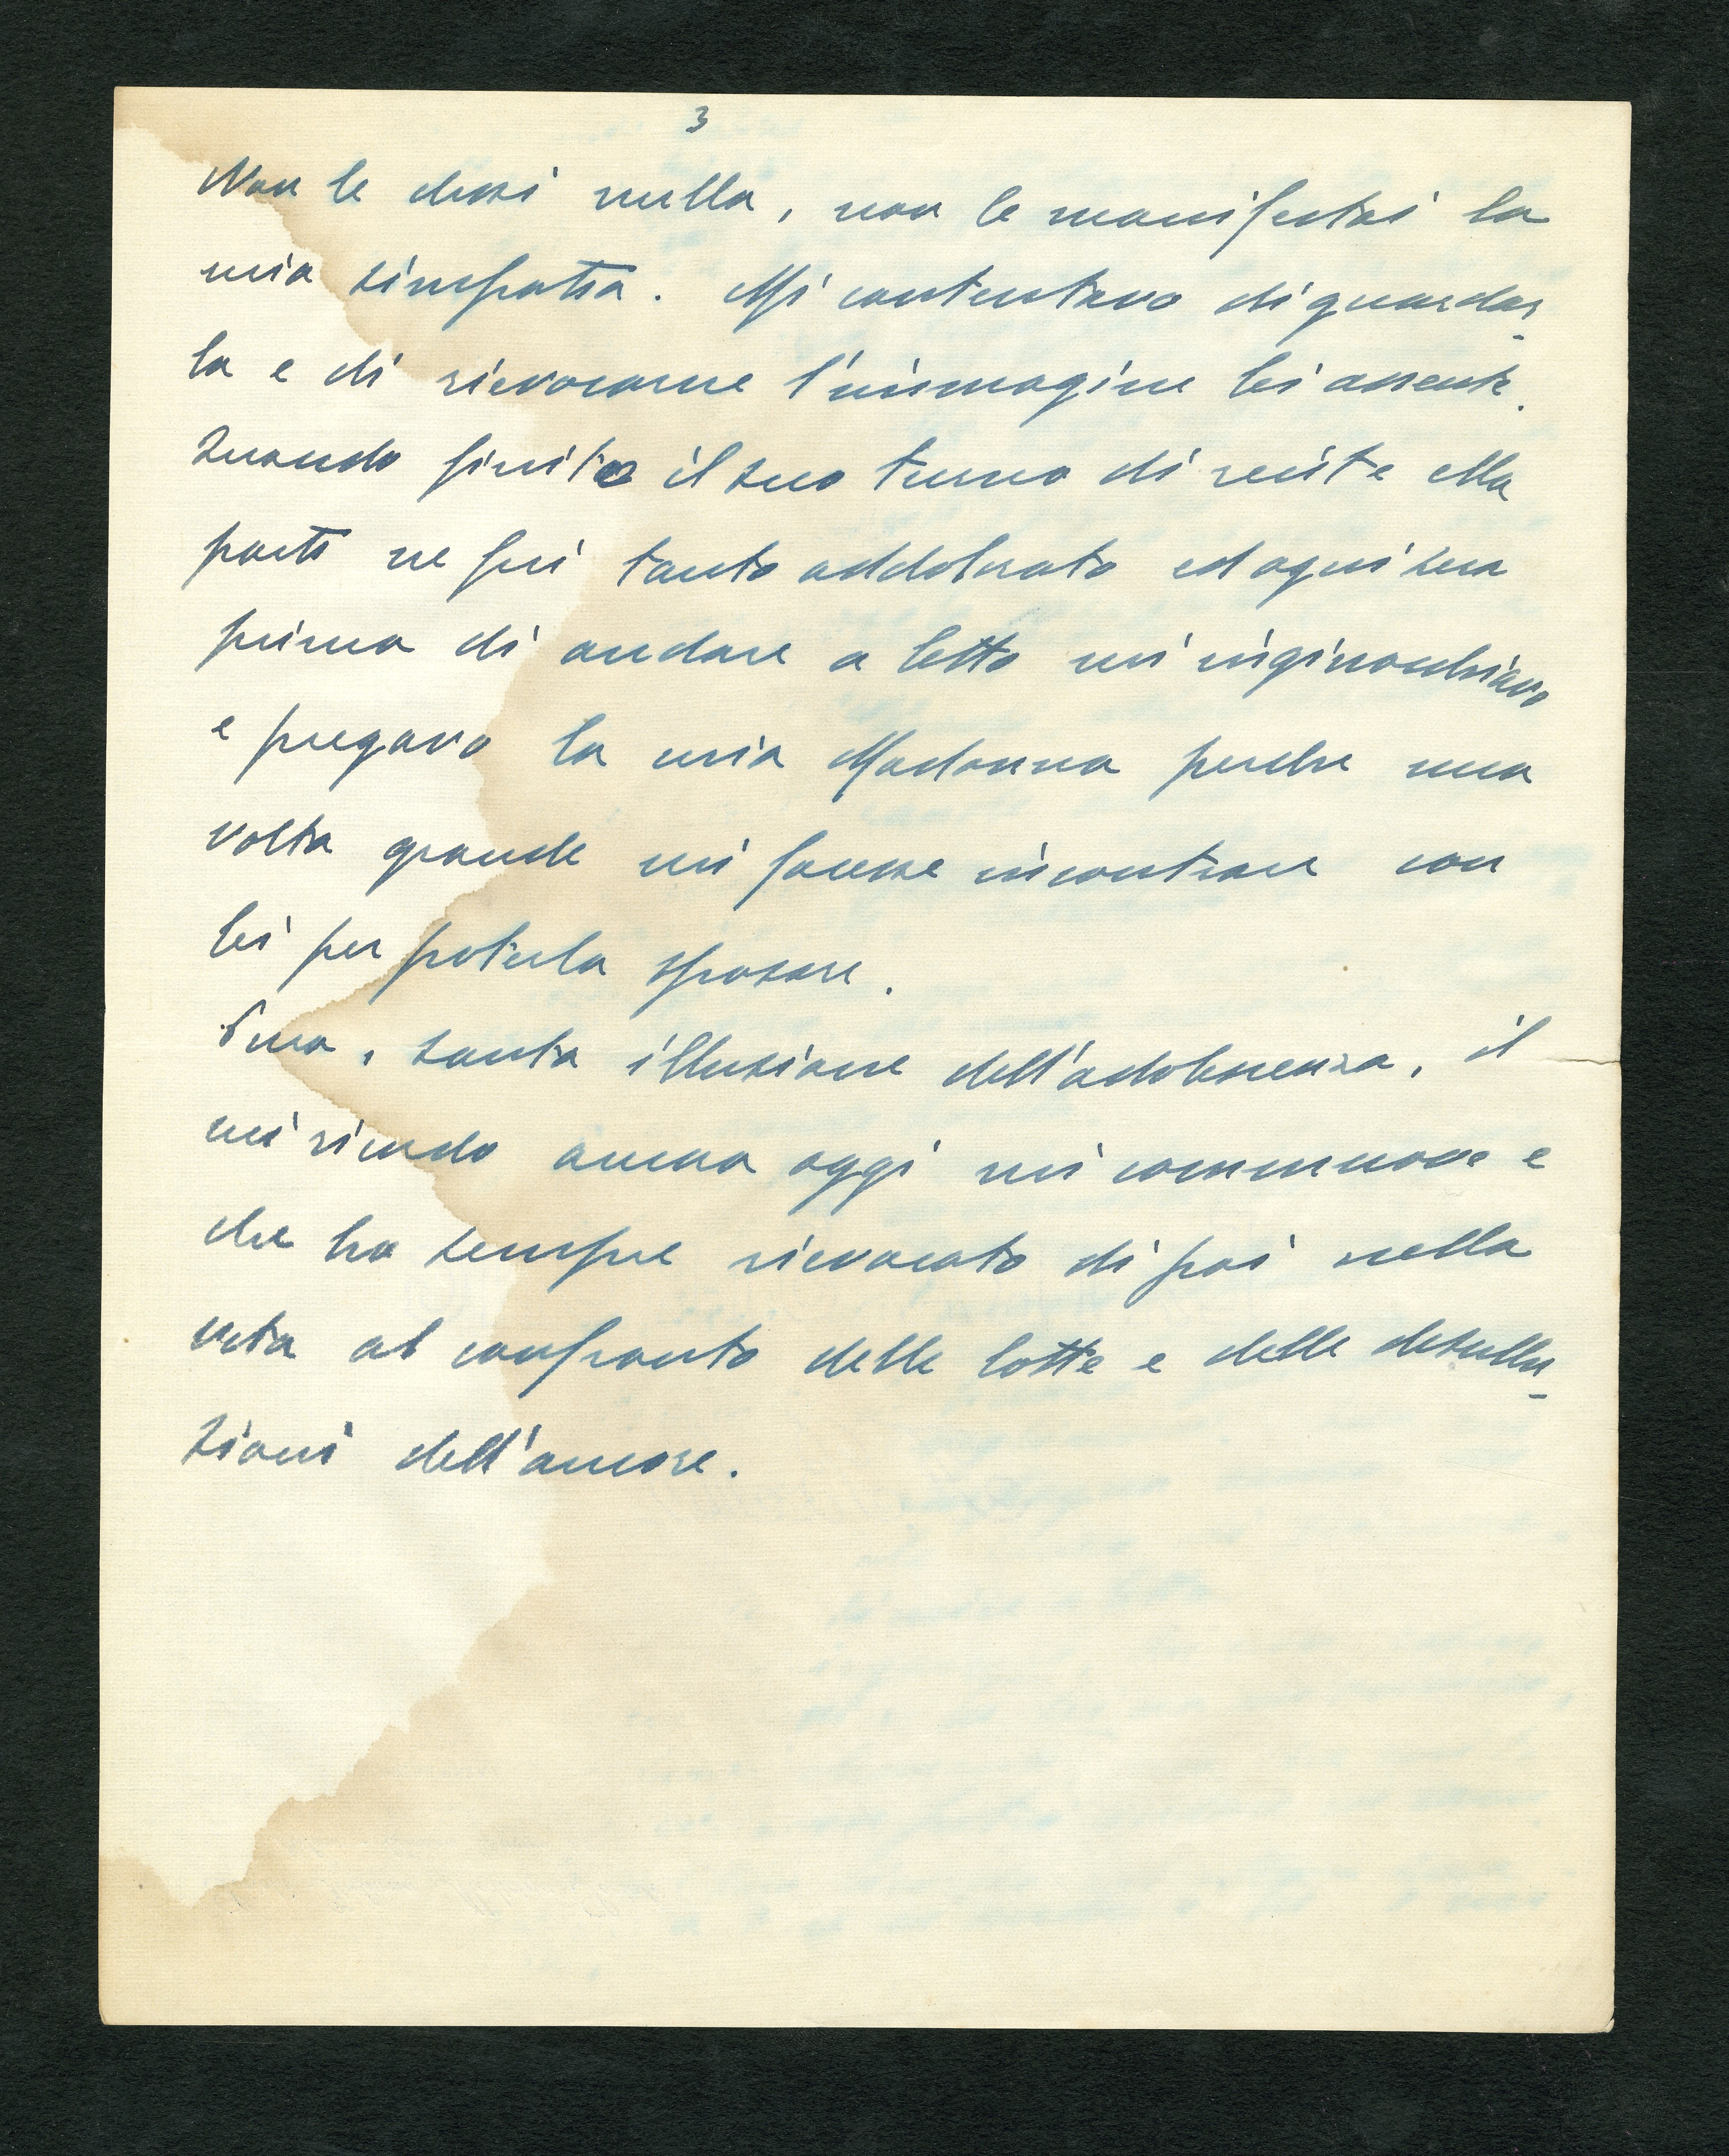 3
Non le dissi nulla, non le manifestai la
mia simpatia. Mi contentavo di guardar_
la e di rievocarne l'immagine lei assente.
Quando finito il suo turno di recite ella
partì ne fui tanto addolorato ed ogni sera
prima di andare a letto mi inginocchiavo
e pregavo la mia Madonna perche una
volta grande mi facesse incontrare con
lei per poterla sposare.
santa illusione dell'adolescenza, il
mi ricordo ancora oggi mi commuove e
che ho sempre rievocato di poi nella
vita al confronto delle lotte e delle desillu_
sioni dell'amore.